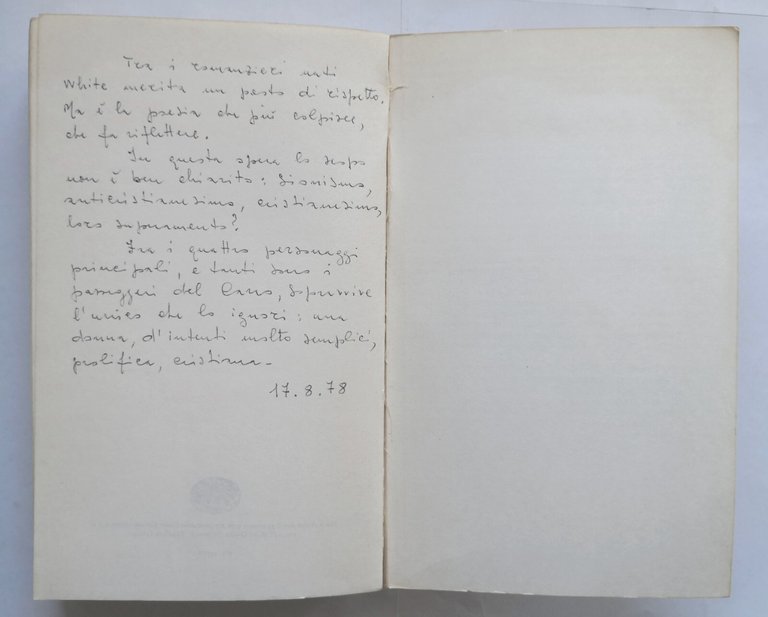 Tra i romanzieri nati
White merita un posto di rispetto.
Ma è la poesia che più colpisce,
che fa riflettere.
In questa opera lo scopo
non è ben chiarito: Sionismo,
anticristianesimo, cristianesimo,
loro superamento?
Fra i quattro personaggi
principali, e tanti sono i
passeggeri del Carro, sopravvive
l'unico che lo ignori: una
donna, d'intenti molto semplici,
prolifica, cristiana -
17.8.78